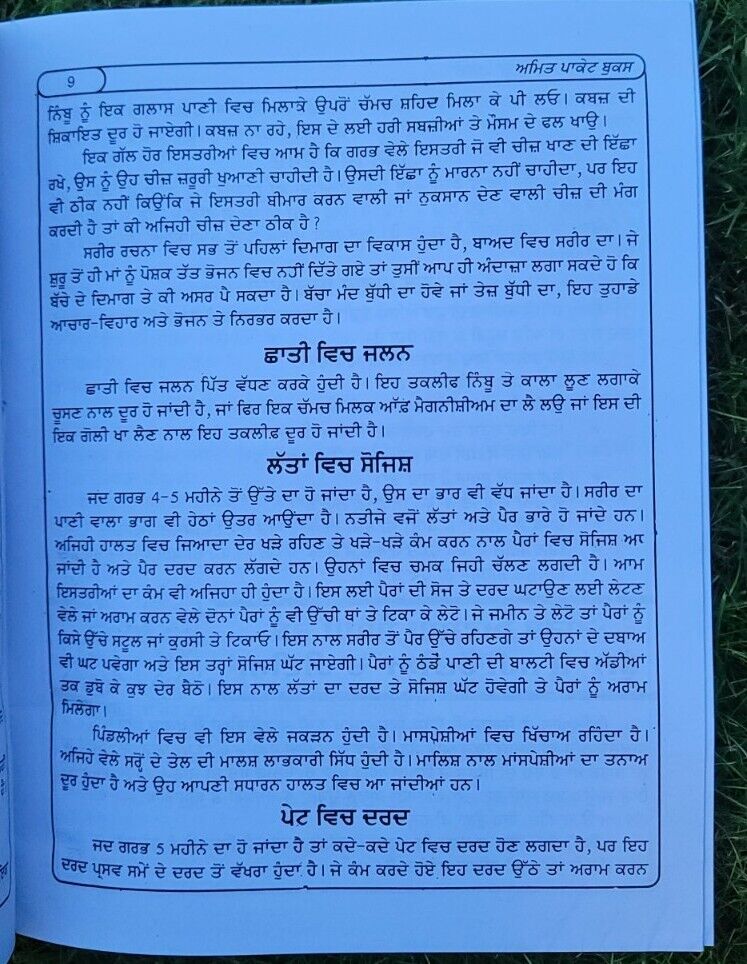 9
ਅਮਿਤ ਪਾਕੇਟ ਬੁਕਸ
ਨਿੰਬੂ ਨੂੰ ਇਕ ਗਲਾਸ ਪਾਣੀ ਵਿਚ ਮਿਲਾਕੇ ਉਪਰੋਂ ਚੱਮਚ ਸ਼ਹਿਦ ਮਿਲਾ ਕੇ ਪੀ ਲਓ। ਕਬਜ਼ ਦੀ
ਸ਼ਿਕਾਇਤ ਦੂਰ ਹੋ ਜਾਏਗੀ। ਕਬਜ਼ ਨਾ ਰਹੇ, ਇਸ ਦੇ ਲਈ ਹਰੀ ਸਬਜ਼ੀਆਂ ਤੇ ਮੌਸਮ ਦੇ ਫਲ ਖਾਉ।
ਇਕ ਗੱਲ ਹੋਰ ਇਸਤਰੀਆਂ ਵਿਚ ਆਮ ਹੈ ਕਿ ਗਰਭ ਵੇਲੇ ਇਸਤਰੀ ਜੋ ਵੀ ਚੀਜ਼ ਖਾਣ ਦੀ ਇੱਛਾ
ਰਖੇ, ਉਸ ਨੂੰ ਉਹ ਚੀਜ਼ ਜ਼ਰੂਰੀ ਖੁਆਣੀ ਚਾਹੀਦੀ ਹੈ। ਉਸਦੀ ਇੱਛਾ ਨੂੰ ਮਾਰਨਾ ਨਹੀਂ ਚਾਹੀਦਾ, ਪਰ ਇਹ
ਵੀ ਠੀਕ ਨਹੀਂ ਕਿਉਂਕਿ ਜੇ ਇਸਤਰੀ ਬੀਮਾਰ ਕਰਨ ਵਾਲੀ ਜਾਂ ਨੁਕਸਾਨ ਦੇਣ ਵਾਲੀ ਚੀਜ਼ ਦੀ ਮੰਗ
ਕਰਦੀ ਹੈ ਤਾਂ ਕੀ ਅਜਿਹੀ ਚੀਜ਼ ਦੇਣਾ ਠੀਕ ਹੈ ?
ਸਰੀਰ ਰਚਨਾ ਵਿਚ ਸਭ ਤੋਂ ਪਹਿਲਾਂ ਦਿਮਾਗ ਦਾ ਵਿਕਾਸ ਹੁੰਦਾ ਹੈ, ਬਾਅਦ ਵਿਚ ਸਰੀਰ ਦਾ। ਜੇ
ਸ਼ੁਰੂ ਤੋਂ ਹੀ ਮਾਂ ਨੂੰ ਪੋਸ਼ਕ ਤੱਤ ਭੋਜਨ ਵਿਚ ਨਹੀਂ ਦਿੱਤੇ ਗਏ ਤਾਂ ਤੁਸੀਂ ਆਪ ਹੀ ਅੰਦਾਜ਼ਾ ਲਗਾ ਸਕਦੇ ਹੋ ਕਿ
ਬੱਚੇ ਦੇ ਦਿਮਾਗ ਤੇ ਕੀ ਅਸਰ ਪੈ ਸਕਦਾ ਹੈ। ਬੱਚਾ ਮੰਦ ਬੁੱਧੀ ਦਾ ਹੋਵੇ ਜਾਂ ਤੇਜ਼ ਬੁੱਧੀ ਦਾ, ਇਹ ਤੁਹਾਡੇ
ਆਚਾਰ-ਵਿਹਾਰ ਅਤੇ ਭੋਜਨ ਤੇ ਨਿਰਭਰ ਕਰਦਾ ਹੈ।
ਛਾਤੀ ਵਿਚ ਜਲਨ
ਛਾਤੀ ਵਿਚ ਜਲਨ ਪਿੱਤ ਵੱਧਣ ਕਰਕੇ ਹੁੰਦੀ ਹੈ। ਇਹ ਤਕਲੀਫ ਨਿੰਬੂ ਤੇ ਕਾਲਾ ਲੂਣ ਲਗਾਕੇ
ਚੂਸਣ ਨਾਲ ਦੂਰ ਹੋ ਜਾਂਦੀ ਹੈ, ਜਾਂ ਫਿਰ ਇਕ ਚੱਮਚ ਮਿਲਕ ਆੱਫ਼ ਮੈਗਨੀਸ਼ੀਅਮ ਦਾ ਲੈ ਲਉ ਜਾਂ ਇਸ ਦੀ
ਇਕ ਗੋਲੀ ਖਾ ਲੈਣ ਨਾਲ ਇਹ ਤਕਲੀਫ਼ ਦੂਰ ਹੋ ਜਾਂਦੀ ਹੈ।
ਲੱਤਾਂ ਵਿਚ ਸੋਜਿਸ਼
ਜਦ ਗਰਭ 4-5 ਮਹੀਨੇ ਤੋਂ ਉੱਤੇ ਦਾ ਹੋ ਜਾਂਦਾ ਹੈ, ਉਸ ਦਾ ਭਾਰ ਵੀ ਵੱਧ ਜਾਂਦਾ ਹੈ। ਸਰੀਰ ਦਾ
ਪਾਣੀ ਵਾਲਾ ਭਾਗ ਵੀ ਹੇਠਾਂ ਉਤਰ ਆਉਂਦਾ ਹੈ। ਨਤੀਜੇ ਵਜੋਂ ਲੱਤਾਂ ਅਤੇ ਪੈਰ ਭਾਰੇ ਹੋ ਜਾਂਦੇ ਹਨ।
ਅਜਿਹੀ ਹਾਲਤ ਵਿਚ ਜਿਆਦਾ ਦੇਰ ਖੜੇ ਰਹਿਣ ਤੇ ਖੜੇ-ਖੜੇ ਕੰਮ ਕਰਨ ਨਾਲ ਪੈਰਾਂ ਵਿਚ ਸੋਜਿਸ਼ ਆ
ਜਾਂਦੀ ਹੈ ਅਤੇ ਪੈਰ ਦਰਦ ਕਰਨ ਲੱਗਦੇ ਹਨ। ਉਹਨਾਂ ਵਿਚ ਚਮਕ ਜਿਹੀ ਚੱਲਣ ਲਗਦੀ ਹੈ। ਆਮ
ਇਸਤਰੀਆਂ ਦਾ ਕੰਮ ਵੀ ਅਜਿਹਾ ਹੀ ਹੁੰਦਾ ਹੈ। ਇਸ ਲਈ ਪੈਰਾਂ ਦੀ ਸੋਜ ਤੇ ਦਰਦ ਘਟਾਉਣ ਲਈ ਲੇਟਣ
ਵੇਲੇ ਜਾਂ ਅਰਾਮ ਕਰਨ ਵੇਲੇ ਦੋਨਾਂ ਪੈਰਾਂ ਨੂੰ ਵੀ ਉੱਚੀ ਥਾਂ ਤੇ ਟਿਕਾ ਕੇ ਲੇਟੋ। ਜੇ ਜਮੀਨ ਤੇ ਲੇਟੋ ਤਾਂ ਪੈਰਾਂ ਨੂੰ
ਕਿਸੇ ਉੱਚੇ ਸਟੂਲ ਜਾਂ ਕੁਰਸੀ ਤੇ ਟਿਕਾਓ। ਇਸ ਨਾਲ ਸਰੀਰ ਤੋਂ ਪੈਰ ਉੱਚੇ ਰਹਿਣਗੇ ਤਾਂ ਉਹਨਾਂ ਦੇ ਦਬਾਅ
ਵੀ ਘਟ ਪਵੇਗਾ ਅਤੇ ਇਸ ਤਰ੍ਹਾਂ ਸੋਜਿਸ਼ ਘੱਟ ਜਾਏਗੀ। ਪੈਰਾਂ ਨੂੰ ਠੰਡੇ ਪਾਣੀ ਦੀ ਬਾਲਟੀ ਵਿਚ ਅੱਡੀਆਂ
ਤਕ ਡੁਬੋ ਕੇ ਕੁਝ ਦੇਰ ਬੈਠੋ। ਇਸ ਨਾਲ ਲੱਤਾਂ ਦਾ ਦਰਦ ਤੇ ਸੋਜਿਸ਼ ਘੱਟ ਹੋਵੇਗੀ ਤੇ ਪੈਰਾਂ ਨੂੰ ਅਰਾਮ
ਮਿਲੇਗਾ।
ਪਿੰਡਲੀਆਂ ਵਿਚ ਵੀ ਇਸ ਵੇਲੇ ਜਕੜਨ ਹੁੰਦੀ ਹੈ। ਮਾਸਪੇਸ਼ੀਆਂ ਵਿਚ ਖਿੱਚਾਅ ਰਹਿੰਦਾ ਹੈ।
ਅਜਿਹੇ ਵੇਲੇ ਸਰ੍ਹੋਂ ਦੇ ਤੇਲ ਦੀ ਮਾਲਸ਼ ਲਾਭਕਾਰੀ ਸਿੱਧ ਹੁੰਦੀ ਹੈ। ਮਾਲਿਸ਼ ਨਾਲ ਮਾਂਸਪੇਸ਼ੀਆਂ ਦਾ ਤਨਾਅ
ਦੂਰ ਹੁੰਦਾ ਹੈ ਅਤੇ ਉਹ ਆਪਣੀ ਸਧਾਰਨ ਹਾਲਤ ਵਿਚ ਆ ਜਾਂਦੀਆਂ ਹਨ।
ਪੇਟ ਵਿਚ ਦਰਦ
ਜਦ ਗਰਭ 5 ਮਹੀਨੇ ਦਾ ਹੋ ਜਾਂਦਾ ਹੈ ਤਾਂ ਕਦੇ-ਕਦੇ ਪੇਟ ਵਿਚ ਦਰਦ ਹੋਣ ਲਗਦਾ ਹੈ, ਪਰ ਇਹ
ਦਰਦ ਪ੍ਰਸਵ ਸਮੇਂ ਦੇ ਦਰਦ ਤੋਂ ਵੱਖਰਾ ਹੁੰਦਾ ਹੈ। ਜੇ ਕੰਮ ਕਰਦੇ ਹੋਏ ਇਹ ਦਰਦ ਉੱਠੇ ਤਾਂ ਅਰਾਮ ਕਰਨ